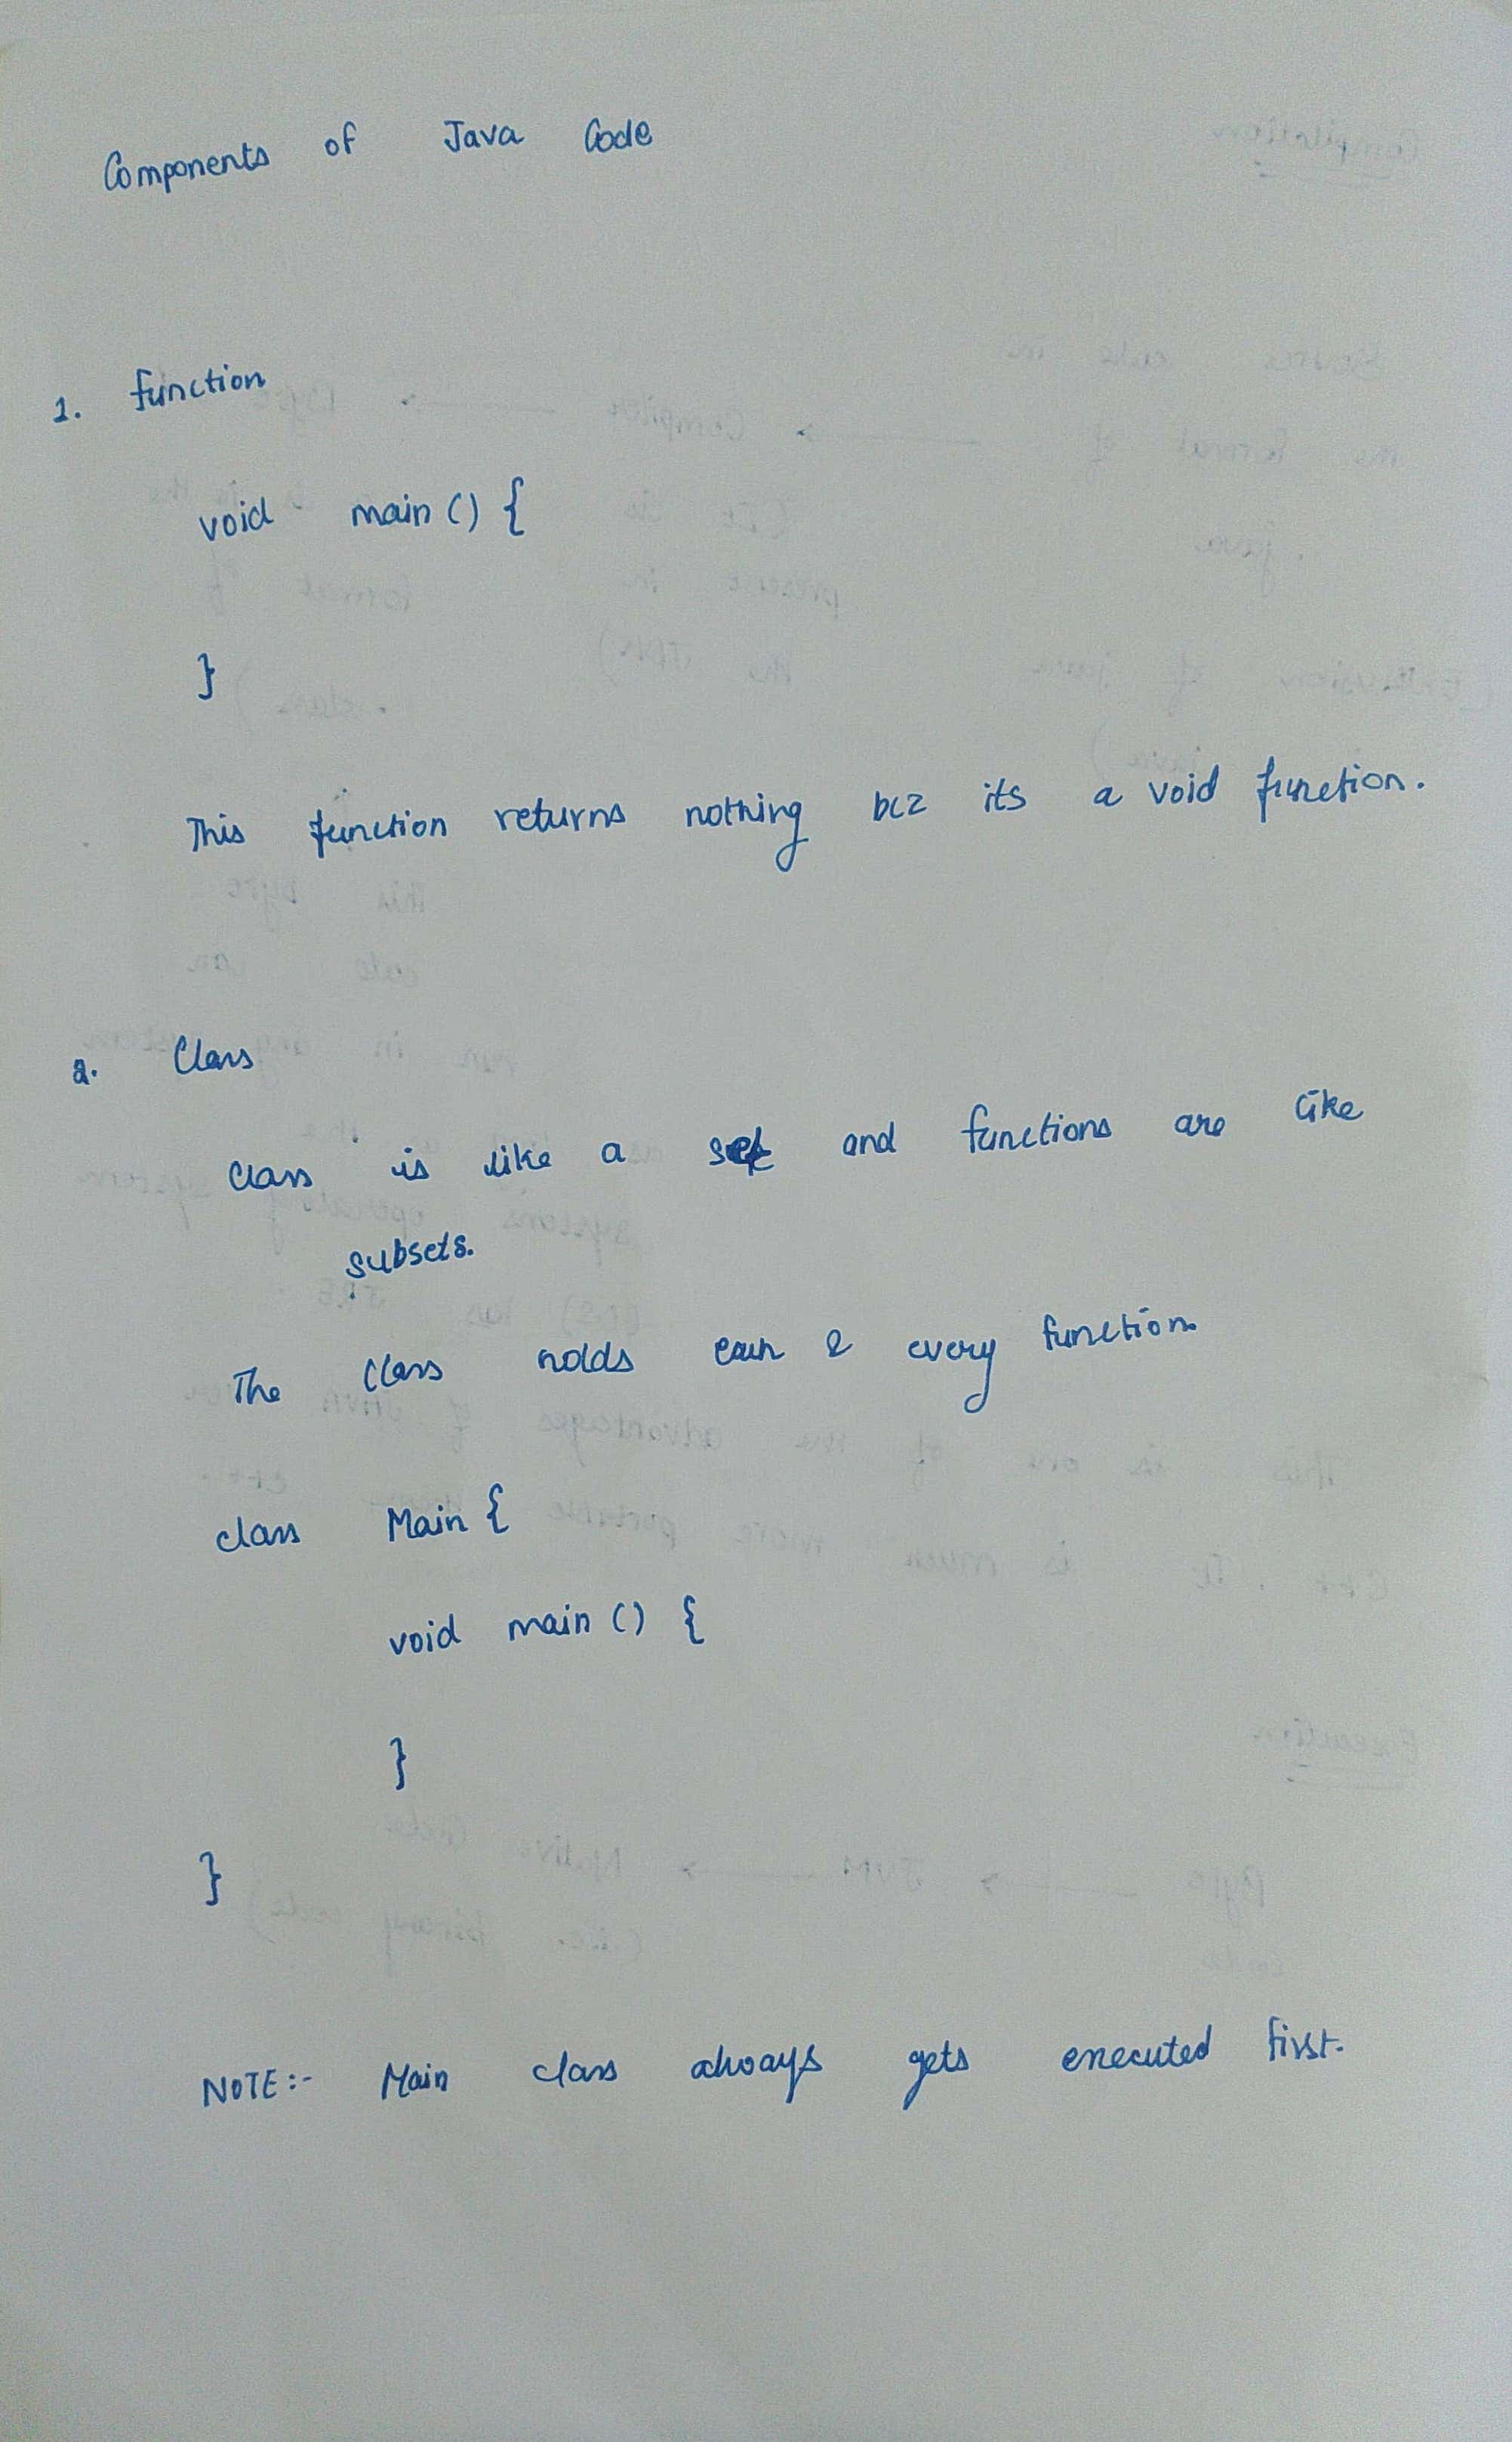 Components of Java Code
1. function
void main () {
}
This function returns nothing bcz its a void function.
2. Class
Class is like a set and functions are like
subsets.
The class holds each & every function
class Main {
void main () {
}
}
NOTE:- Main class always gets executed first.